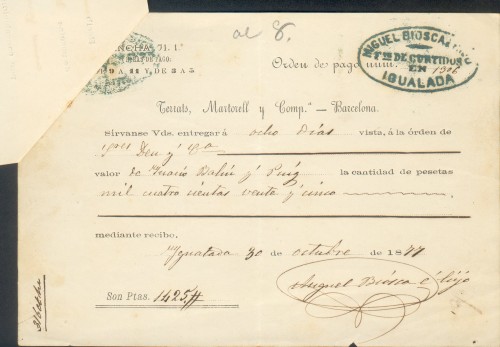 al 8.
Orden des pago núm. 1306
MIGUEL BIOSCA
DE CURTIDOS
EN
IGUALADA
Terrats, Martorell y Comp.ª – Barcelona.
Sírvanse Vds. entregar á ocho días vista, á la órden de
Sres Deu y Cª
valor de Ignacio y Puig la cantidad de pesetas
mil cuatro cientas vente y cinco
mediante recibo.
Ygualada 30 de octubre de 1877
Son Ptas. 1425 #
Miguel Biosca é hijo